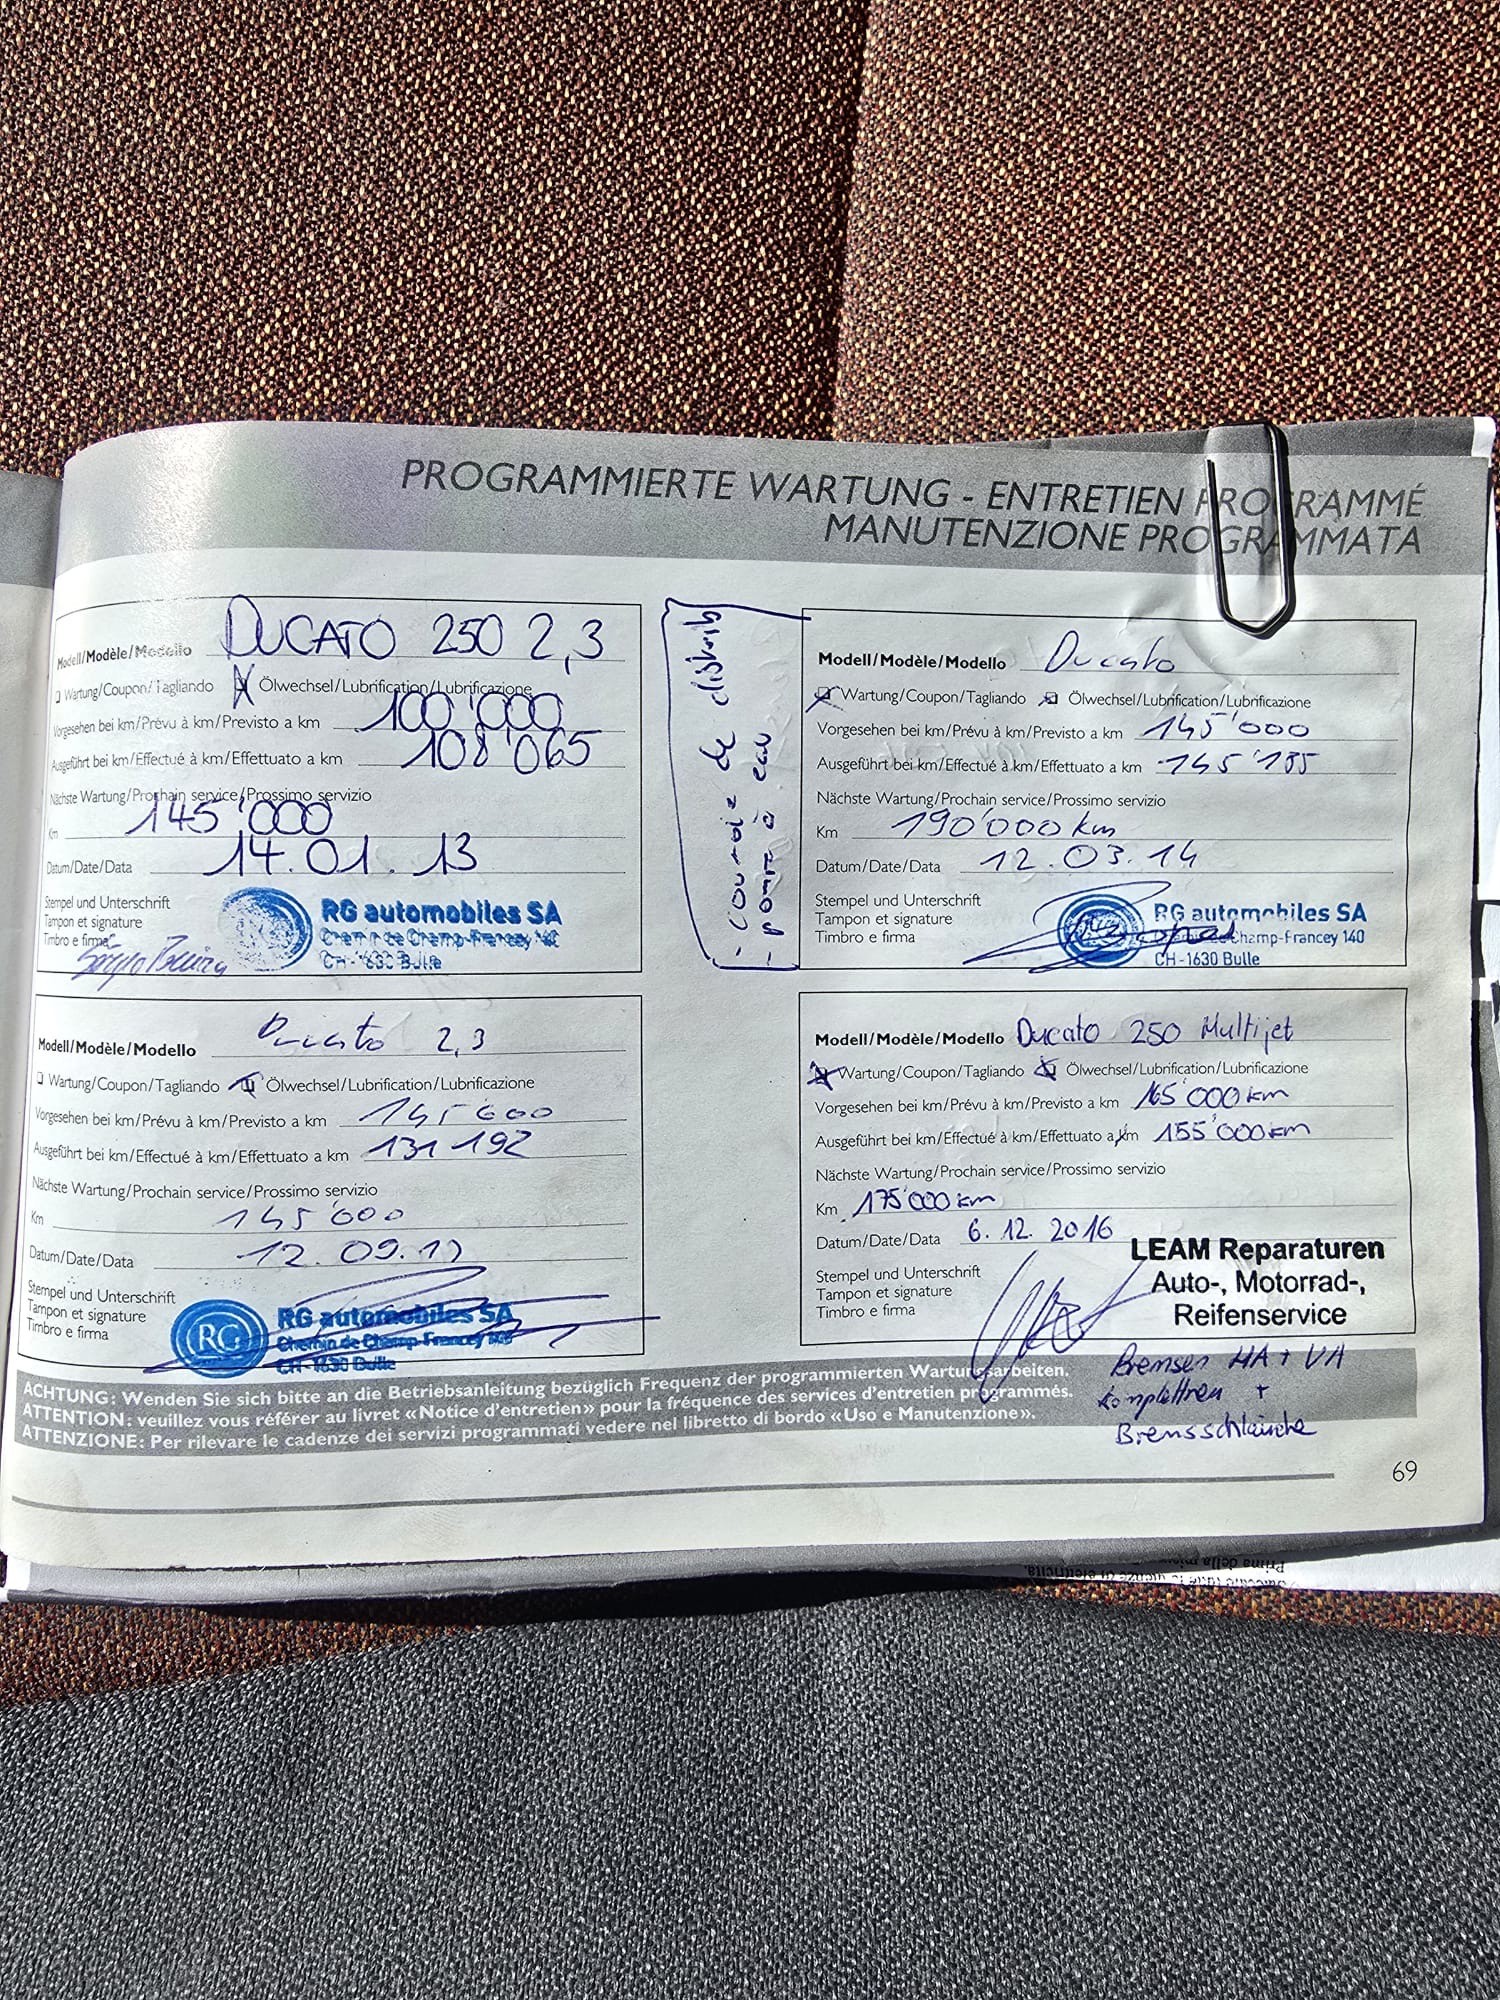 PROGRAMMIERTE WARTUNG - ENTRETIEN PROGRAMMÉ
MANUTENZIONE PROGRAMMATA
Modell/Modèle/Modello DUCATO 250 2,3
Wartung/Coupon/Tagliando Ölwechsel/Lubrification/Lubrificazione
Vorgesehen bei km/Prévu à km/Previsto a km 100'000
Ausgeführt bei km/Effectué à km/Effettuato a km 108'065
Nächste Wartung/Prochain service/Prossimo servizio
Km 145'000
Datum/Date/Data 14.01.13
Stempel und Unterschrift
Tampon et signature
Timbro e firma
RG automobiles SA
Chemin de Champ-Francey 140
CH-1630 Bulle
- courroie de distrib
- pompe à eau
Modell/Modèle/Modello Ducato
Wartung/Coupon/Tagliando Ölwechsel/Lubrification/Lubrificazione
Vorgesehen bei km/Prévu à km/Previsto a km 145'000
Ausgeführt bei km/Effectué à km/Effettuato a km 145'135
Nächste Wartung/Prochain service/Prossimo servizio
Km 190'000 km
Datum/Date/Data 12.03.14
Stempel und Unterschrift
Tampon et signature
Timbro e firma
RG automobiles SA
Champ-Francey 140
CH-1630 Bulle
Modell/Modèle/Modello Ducato 2,3
Wartung/Coupon/Tagliando Ölwechsel/Lubrification/Lubrificazione
Vorgesehen bei km/Prévu à km/Previsto a km 145'000
Ausgeführt bei km/Effectué à km/Effettuato a km 131 192
Nächste Wartung/Prochain service/Prossimo servizio
Km 145'000
Datum/Date/Data 12.09.13
Stempel und Unterschrift
Tampon et signature
Timbro e firma
RG
RG automobiles SA
Chemin de Champ-Francey 140
CH-1630 Bulle
Modell/Modèle/Modello Ducato 250 Multijet
Wartung/Coupon/Tagliando Ölwechsel/Lubrification/Lubrificazione
Vorgesehen bei km/Prévu à km/Previsto a km 165'000 km
Ausgeführt bei km/Effectué à km/Effettuato a km 155'000 km
Nächste Wartung/Prochain service/Prossimo servizio
Km 175'000 km
Datum/Date/Data 6.12.2016
Stempel und Unterschrift
Tampon et signature
Timbro e firma
LEAM Reparaturen
Auto-, Motorrad-,
Reifenservice
Bremsen HA + VA
+
Bremsschläuche
ACHTUNG: Wenden Sie sich bitte an die Betriebsanleitung bezüglich Frequenz der programmierten Wartungsarbeiten.
ATTENTION: veuillez vous référer au livret «Notice d'entretien» pour la fréquence des services d'entretien programmés.
ATTENZIONE: Per rilevare le cadenze dei servizi programmati vedere nel libretto di bordo «Uso e Manutenzione».
69
Prima della